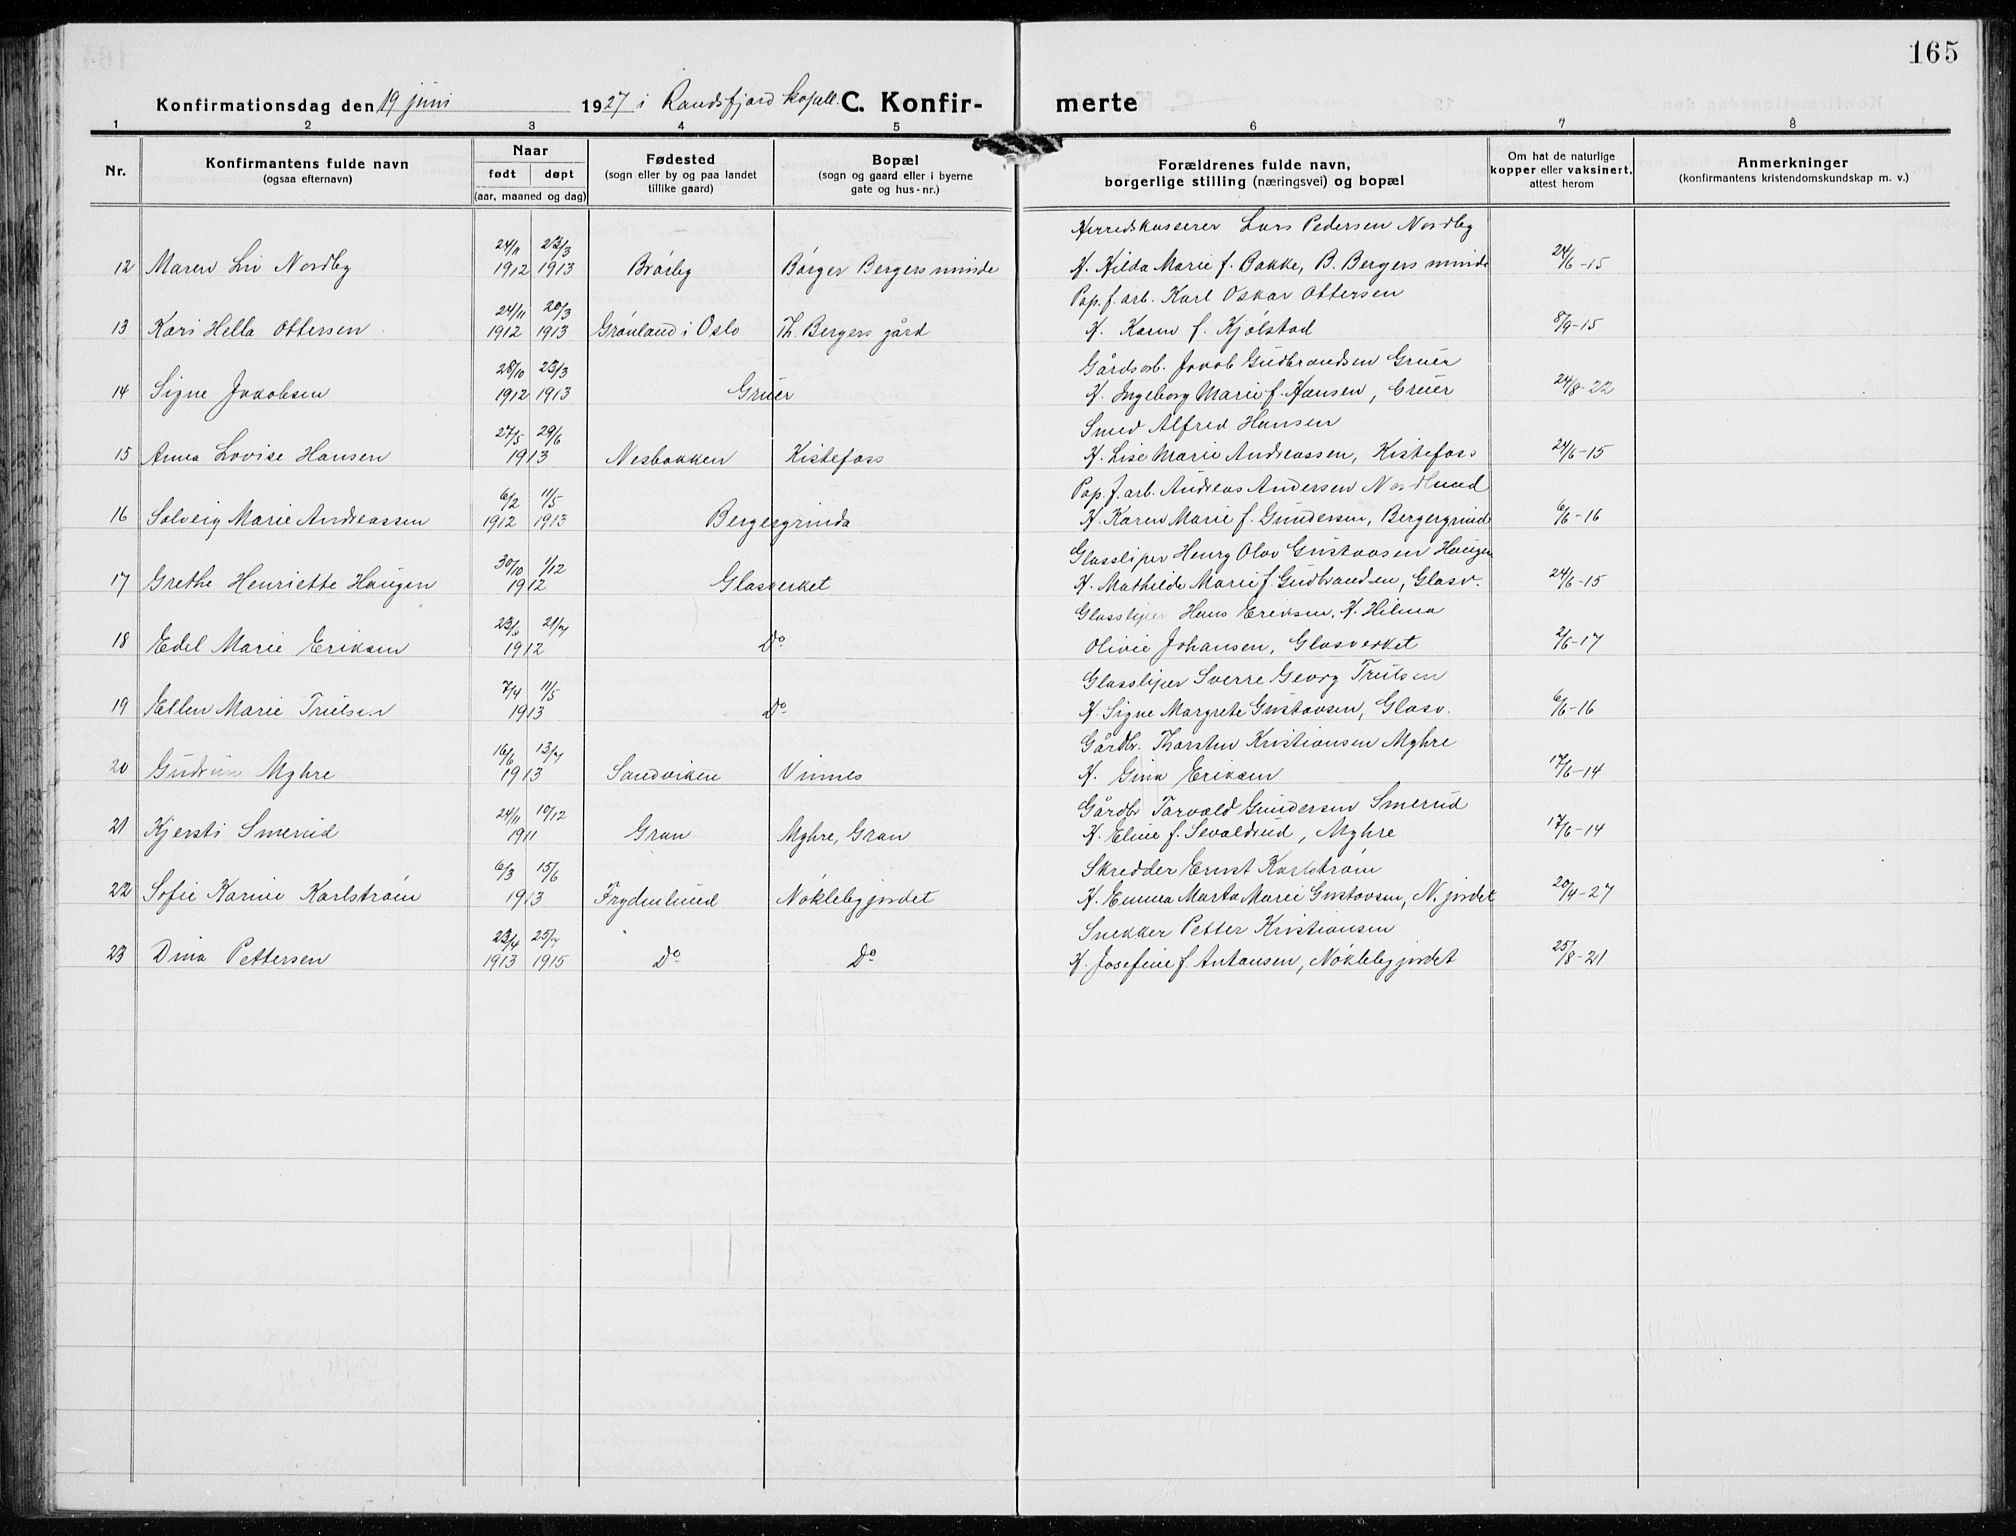 165
Konfirmationsdag den 19 juni 1927 i Randsfjord kapell. C. Konfir- merte
1 2 3 4 5 6 7 8
Nr. Konfirmantens fulde navn (ogsaa efternavn) Naar født døpt (aar, maaned og dag) Fødested (sogn eller by og paa landet tillike gaard) Bopæl (sogn og gaard eller i byerne gate og hus-nr.) Forældrenes fulde navn, borgerlige stilling (næringsvei) og bopæl Om hat de naturlige kopper eller vaksinert, attest herom Anmerkninger (konfirmantens kristendomskundskap m. v.)
24/11 23/3 Herredskasserer Lars Pedersen Nordby
12 Maren Liv Nordby 1912 1913 Bråeby Børger Bergersminde H. Hilda Marie f. Bakke, B. Bergersminde 24/6-15
24/11 20/3 Pap.f.arb. Karl Oskar Ottersen
13 Kari Hella Ottersen 1912 1913 Grønland i Oslo Th. Bergers gård H. Karen f. Kjølstad 8/9-15
28/10 23/3 Gårdsarb. Jakob Gudbrandsen Gruer
14 Signe Jakobsen 1912 1913 Gruer H. Ingeborg Marie f. Hansen, Gruer 24/8-22
27/5 29/6 Smed Alfred Hansen
15 Anna Lovise Hansen 1913 Nesbakken Kistefoss H. Lise Marie Andreassen, Kistefoss 24/6-15
6/2 11/5 Pap.f.arb. Andreas Andersen Nordlund
16 Solveig Marie Andreassen 1912 1913 Bergergrinda H. Karen Marie f. Gundersen, Bergergrind 6/6-16
30/10 1/12 Glassliper Henry Olav Gustavsen Haugen
17 Grethe Henriette Haugen 1912 Glasverket H. Mathilde Marie f. Gudbrandsen, Glasv. 24/6-15
23/6 21/7 Glassliper Hans Eriksen, H. Hilma
18 Edel Marie Eriksen 1912 Do Olivie Johansen, Glasverket 2/6-17
7/4 11/5 Glassliper Sverre Georg Trulsen
19 Ellen Marie Trulsen 1913 Do H. Signe Margrete Gustavsen, Glasv. 6/6-16
16/6 13/7 Gårdbr. Thorsten Kristiansen Myhre
20 Gudrun Myhre 1913 Sandviken Vinnes H. Gina Eriksen 17/6-14
24/11 10/12 Gårdbr Torvald Gundersen Smerud
21 Kjersti Smerud 1911 Gran Myhre, Gran H. Eline f. Sevaldrud, Myhre 17/6-14
6/3 15/6 Skredder Ernst Karlstrøm
22 Sofie Karine Karlstrøm 1913 Frydenlund Nøklebyjordet H. Emma Marta Marie Gustavsen, N. jordet 20/4-27
23/4 25/7 Snekker Petter Kristiansen
23 Dina Pettersen 1913 1915 Do Do H. Josefine f. Antonsen, Nøklebyjordet 25/8-21